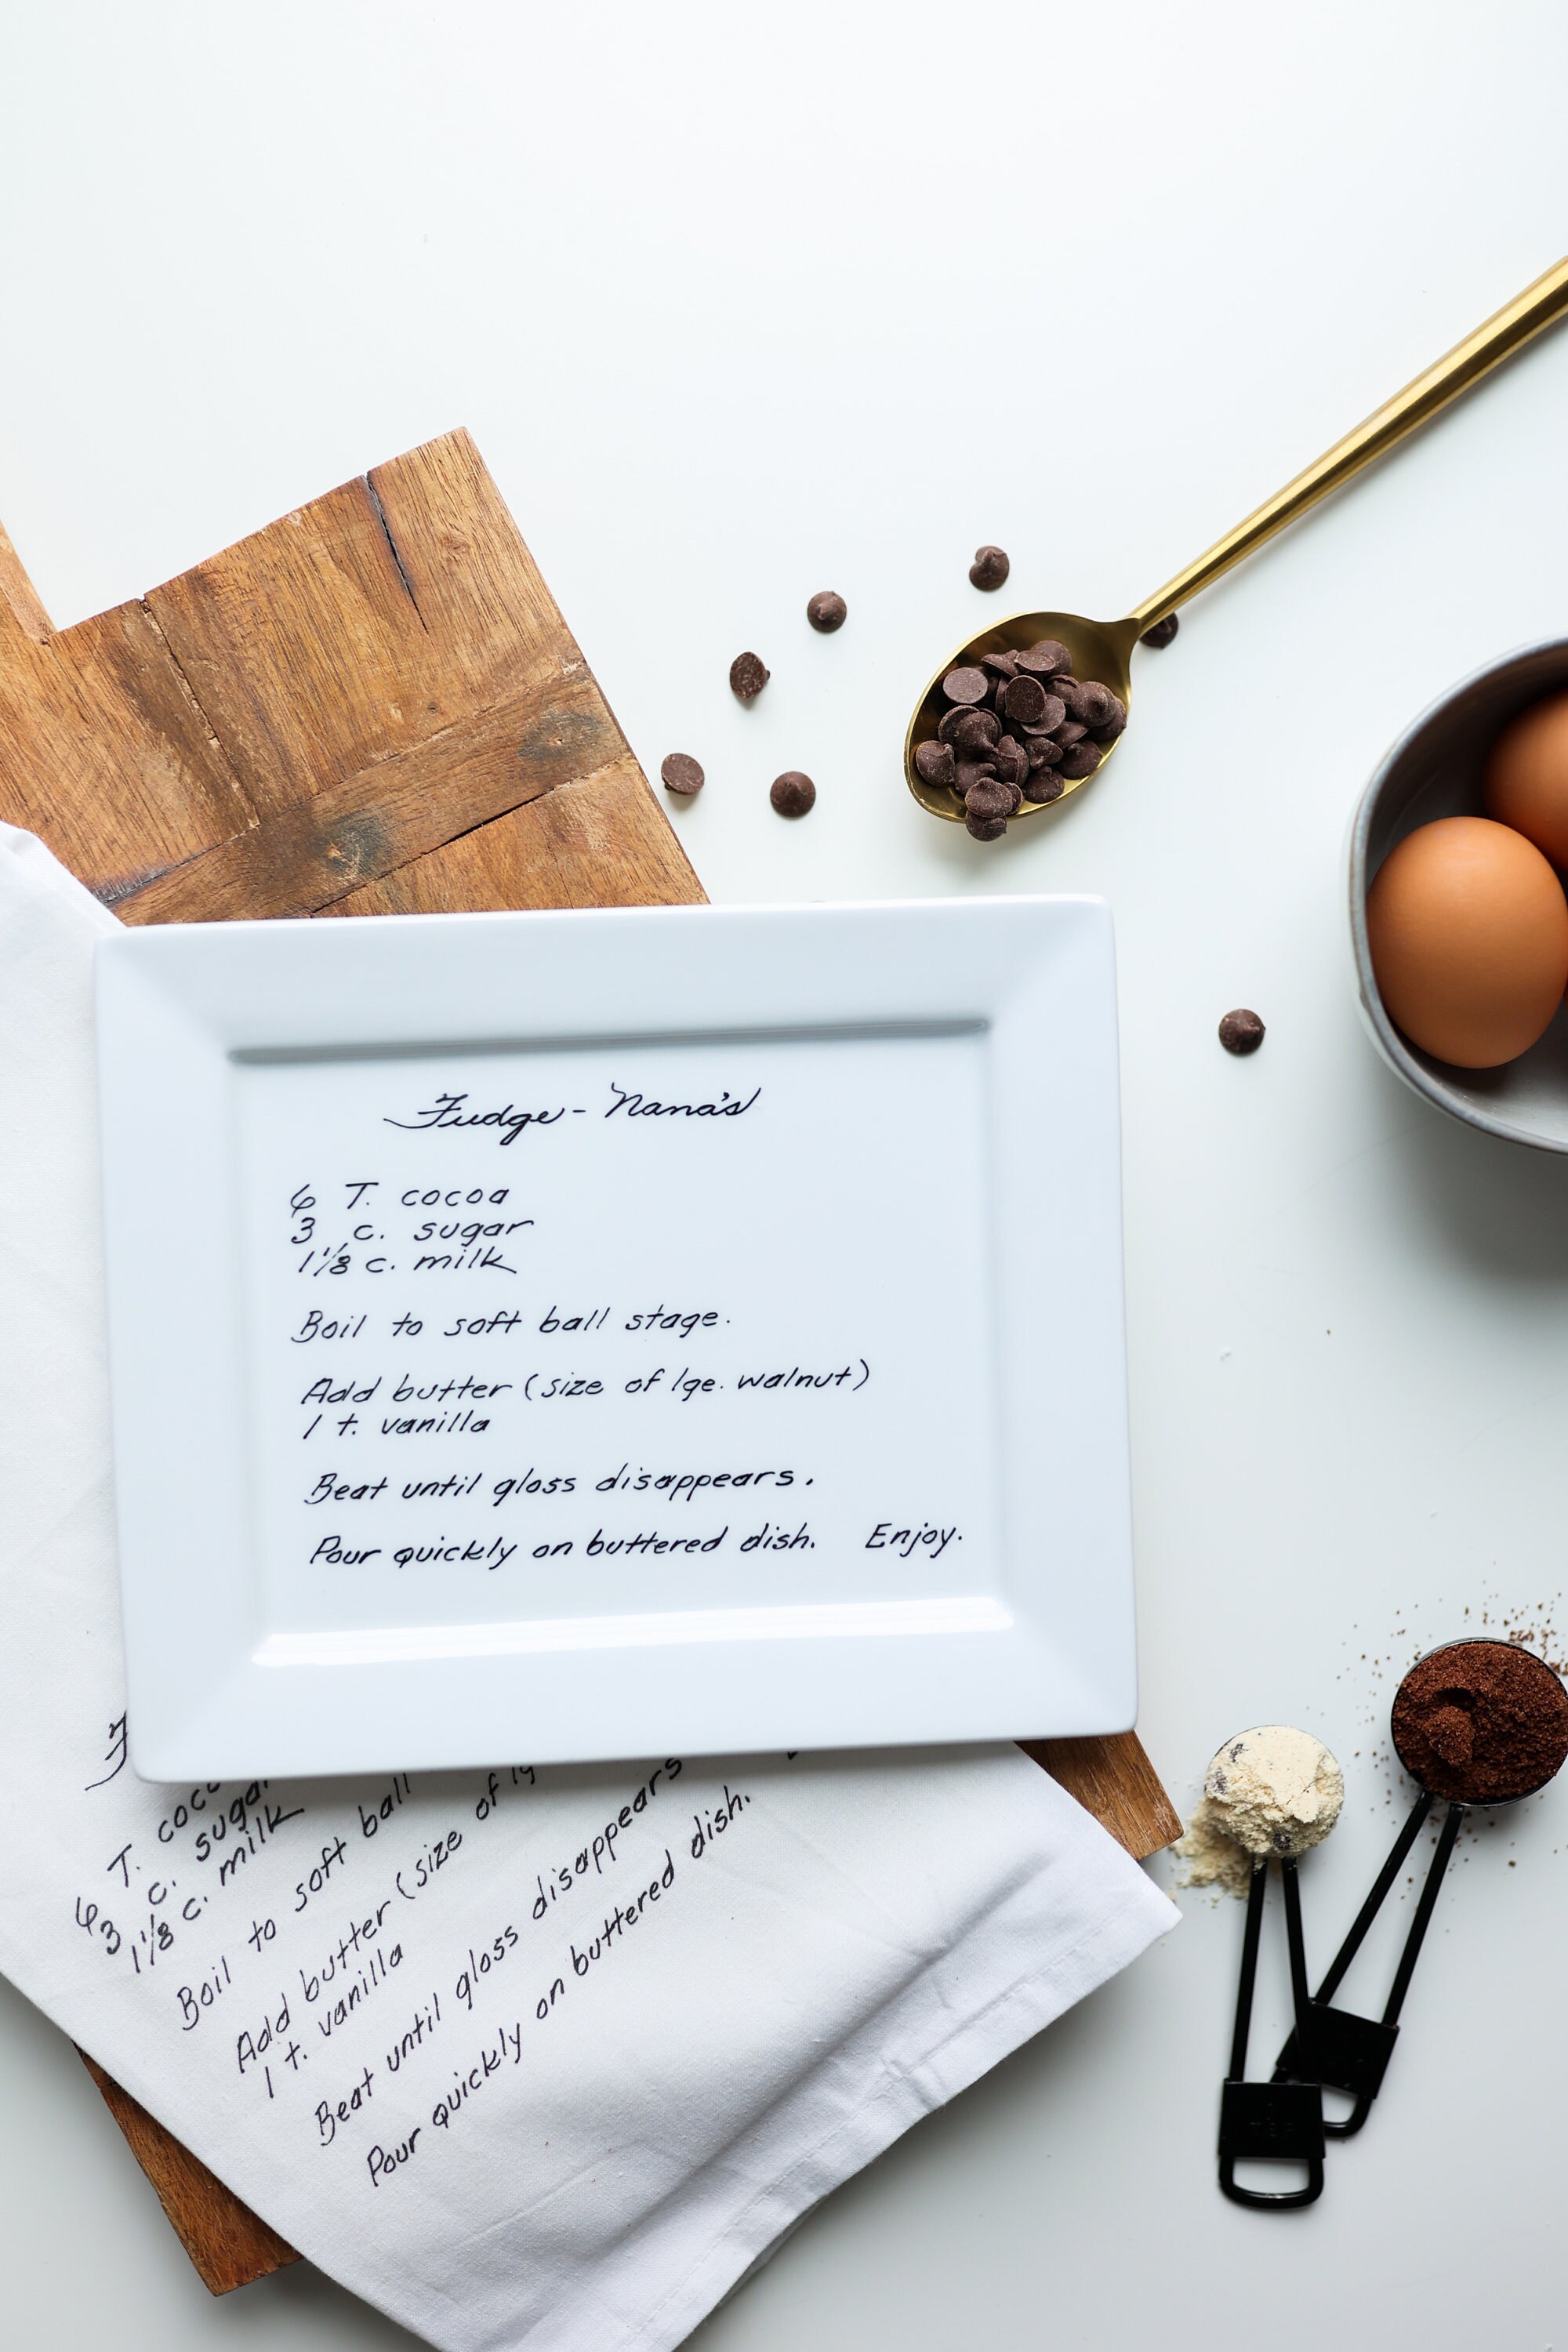 Fudge - Nana's
6 T. cocoa
3 c. sugar
1 1/8 c. milk
Boil to soft ball stage.
Add butter (size of lge. walnut)
1 t. vanilla
Beat until gloss disappears.
Pour quickly on buttered dish. Enjoy.
6 T. coco
3 c. sugar
1 1/8 c. milk
Boil to soft ball
Add butter (size of lg
1 t. vanilla
Beat until gloss disappears
Pour quickly on buttered dish.